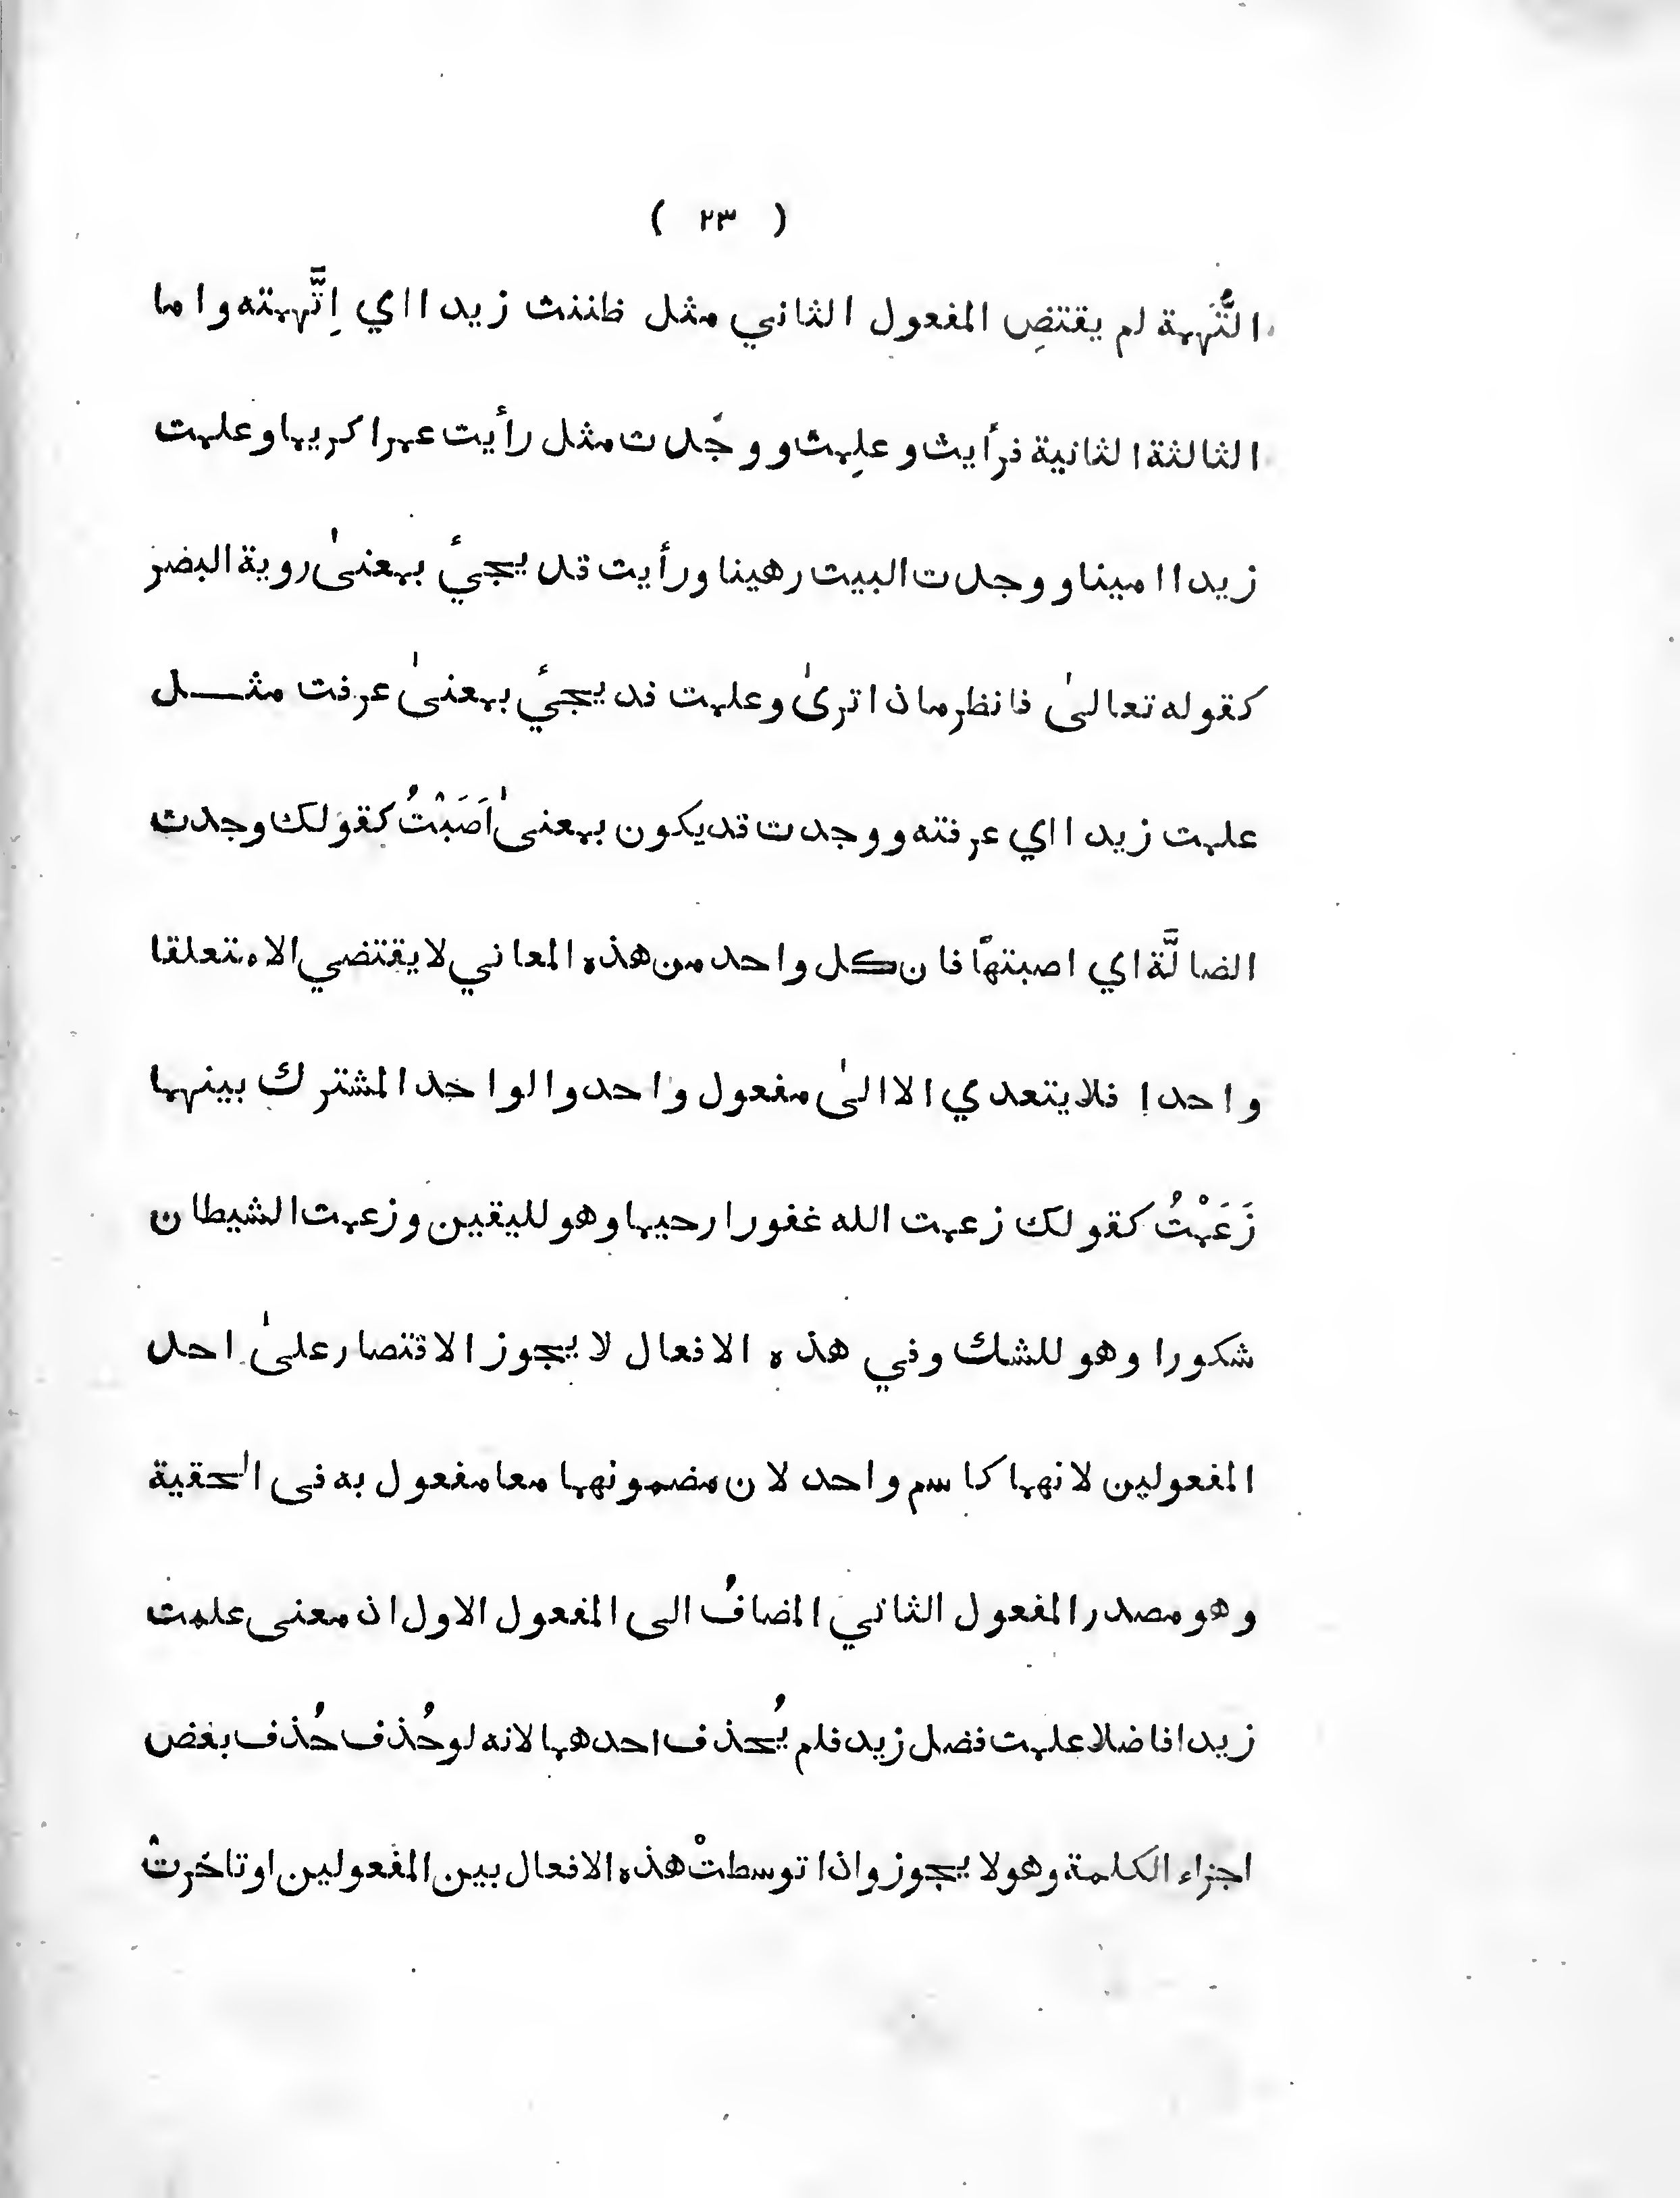 ( ٢٣ )
التُّهمة لم يقتضِ المفعول الثاني مثل ظننت زيدا اي اِتَّهمته واما
الثالثة الثانية فرأيت وعلِمت ووجَدت مثل رأيت عمرا كريما وعلمت
زيدا امينا ووجدت البيت رهينا ورأيت قد يجئ بمعنىٰ روية البصر
كقوله تعالىٰ فانظر ماذا ترىٰ وعلمت قد يجئ بمعنىٰ عرفت مثـــل
علمت زيدا اي عرفته ووجدت قديكون بمعنىٰ اَصَبْتُ كقولك وجدت
الضالَّة اي اصبتها فان كل واحد من هذه المعاني لا يقتضي الا متعلقا
واحدا فلا يتعدي الا الىٰ مفعول واحد والواحد المشترك بينهما
زَعَمْتُ كقولك زعمت الله غفورا رحيما وهو لليقين وزعمت الشيطان
شكورا وهو للشك وفي هذه الافعال لا يجوز الاقتصار علىٰ احد
المفعولين لانهما كاسم واحد لان مضمونهما معا مفعول به فى الحقية
وهو مصدر المفعول الثاني المضافُ الى المفعول الاول اذ معنى علمت
زيدا فاضلا علمت فضل زيد فلم يُحذف احدهما لانه لوحُذف حُذف بعض
اجزاء الكلمة وهو لا يجوز واذا توسطتْ هذه الافعال بين المفعولين او تاخرتْ